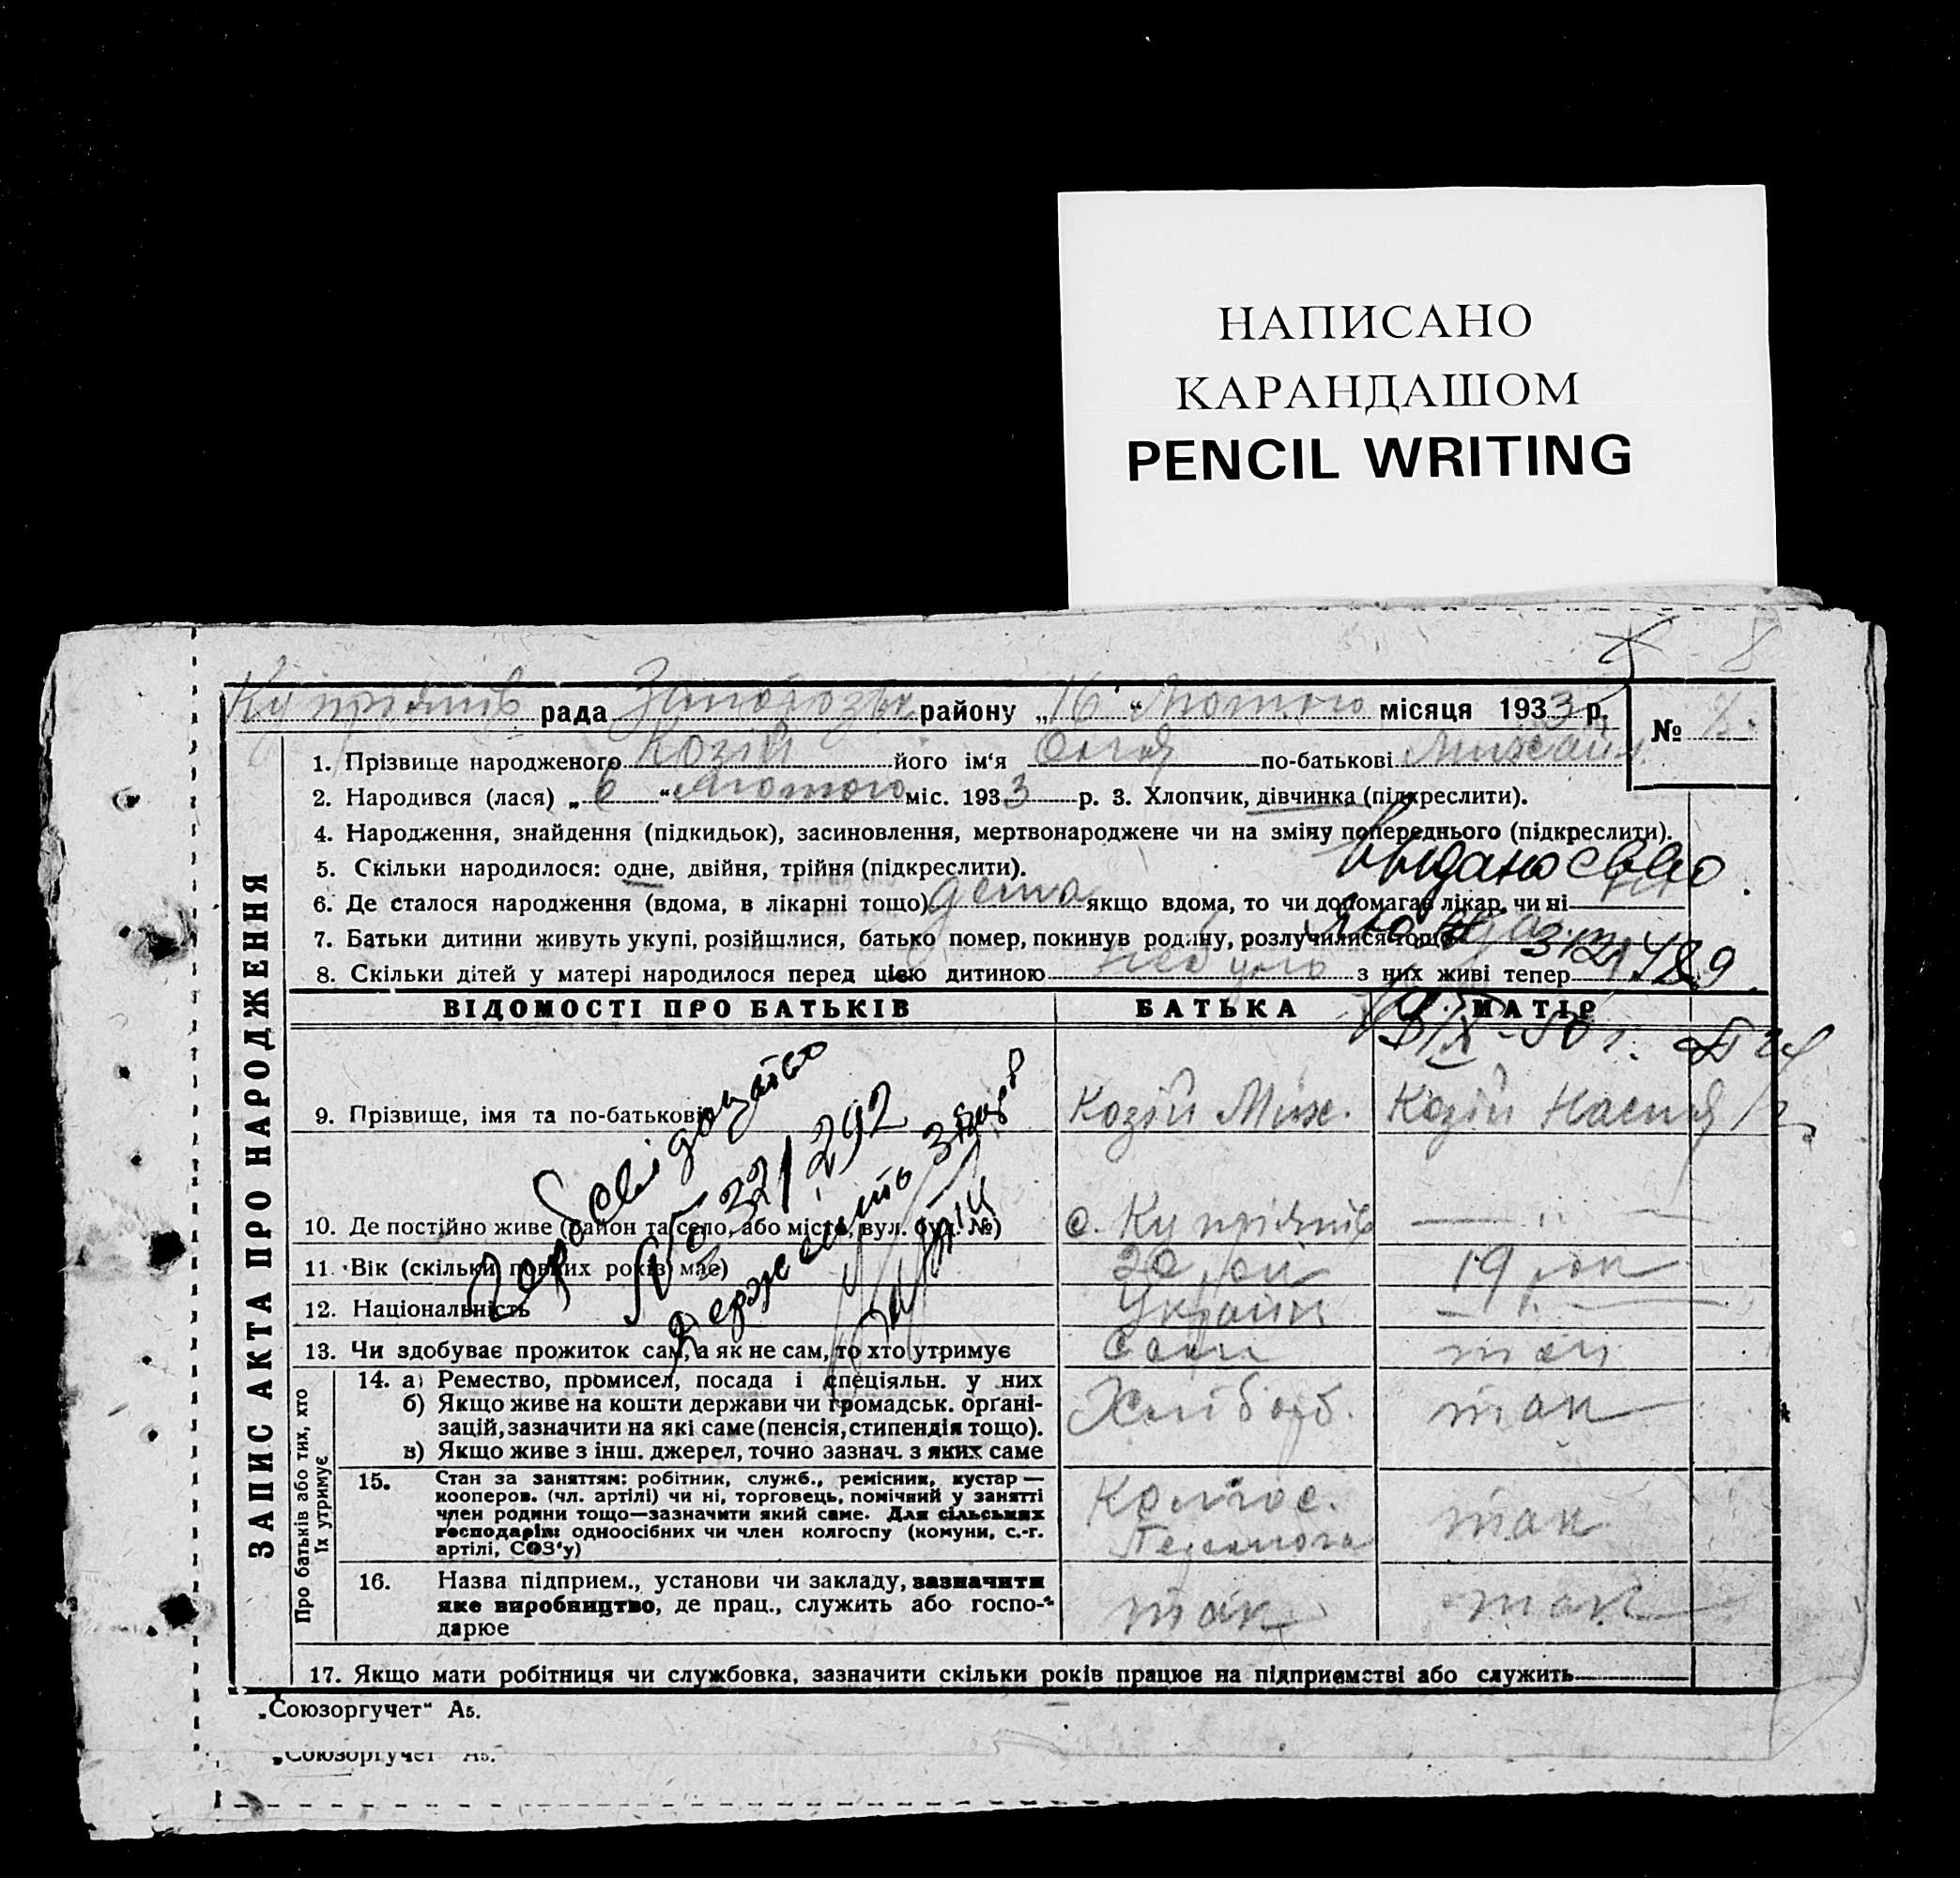 НАПИСАНО
КАРАНДАШОМ
PENCIL WRITING
8
рада району „16“ Лютого місяця 1933 р. № 8.
1. Прізвище народженого Козій його ім'я Ольга по-батькові Михайл.
2. Народився (лася) „6“ Лютого міс. 1933 р. 3. Хлопчик, дівчинка (підкреслити).
4. Народження, знайдення (підкидьок), засиновлення, мертвонароджене чи на зміну попереднього (підкреслити).
5. Скільки народилося: одне, двійня, трійня (підкреслити).
видано св-во
6. Де сталося народження (вдома, в лікарні тощо) дома якщо вдома, то чи допомагав лікар, чи ні
7. Батьки дитини живуть укупі, розійшлися, батько помер, покинув родину, розлучилися тощо
8. Скільки дітей у матері народилося перед цією дитиною не було з них живі тепер
ЗАПИС АКТА ПРО НАРОДЖЕННЯ
ВІДОМОСТІ ПРО БАТЬКІВ БАТЬКА МАТІР
9. Прізвище, імя та по-батькові Козій Мих. Козій Настя
10. Де постійно живе (район та село, або місто, вул. буд. №) с. Купріянів — „ —
11. Вік (скільки повних років має) 20 рок 19 рок
12. Національність Україн — „ —
13. Чи здобуває прожиток сам, а як не сам, то хто утримує сам так
Про батьків або тих, хто їх утримує
14. а) Ремество, промисел, посада і спеціяльн. у них
б) Якщо живе на кошти держави чи громадськ. органі-
зацій, зазначити на які саме (пенсія, стипендія тощо).
в) Якщо живе з інш. джерел, точно зазнач. з яких саме
Хлібороб. так
15. Стан за заняттям: робітник, служб., ремісник, кустар —
кооперов. (чл. артілі) чи ні, торговець, помічний у занятті
член родини тощо—зазначити який саме. Для сільських
господарів: одноосібних чи член колгоспу (комуни, с.-г.
артілі, СОЗ'у)
Колгос. так
Перемога
16. Назва підприєм., установи чи закладу, зазначити
яке виробництво, де прац., служить або госпо-
дарює
так так
17. Якщо мати робітниця чи службовка, зазначити скільки років працює на підприємстві або служить
„Союзоргучет“ А5.
„Союзоргучет“ А5.